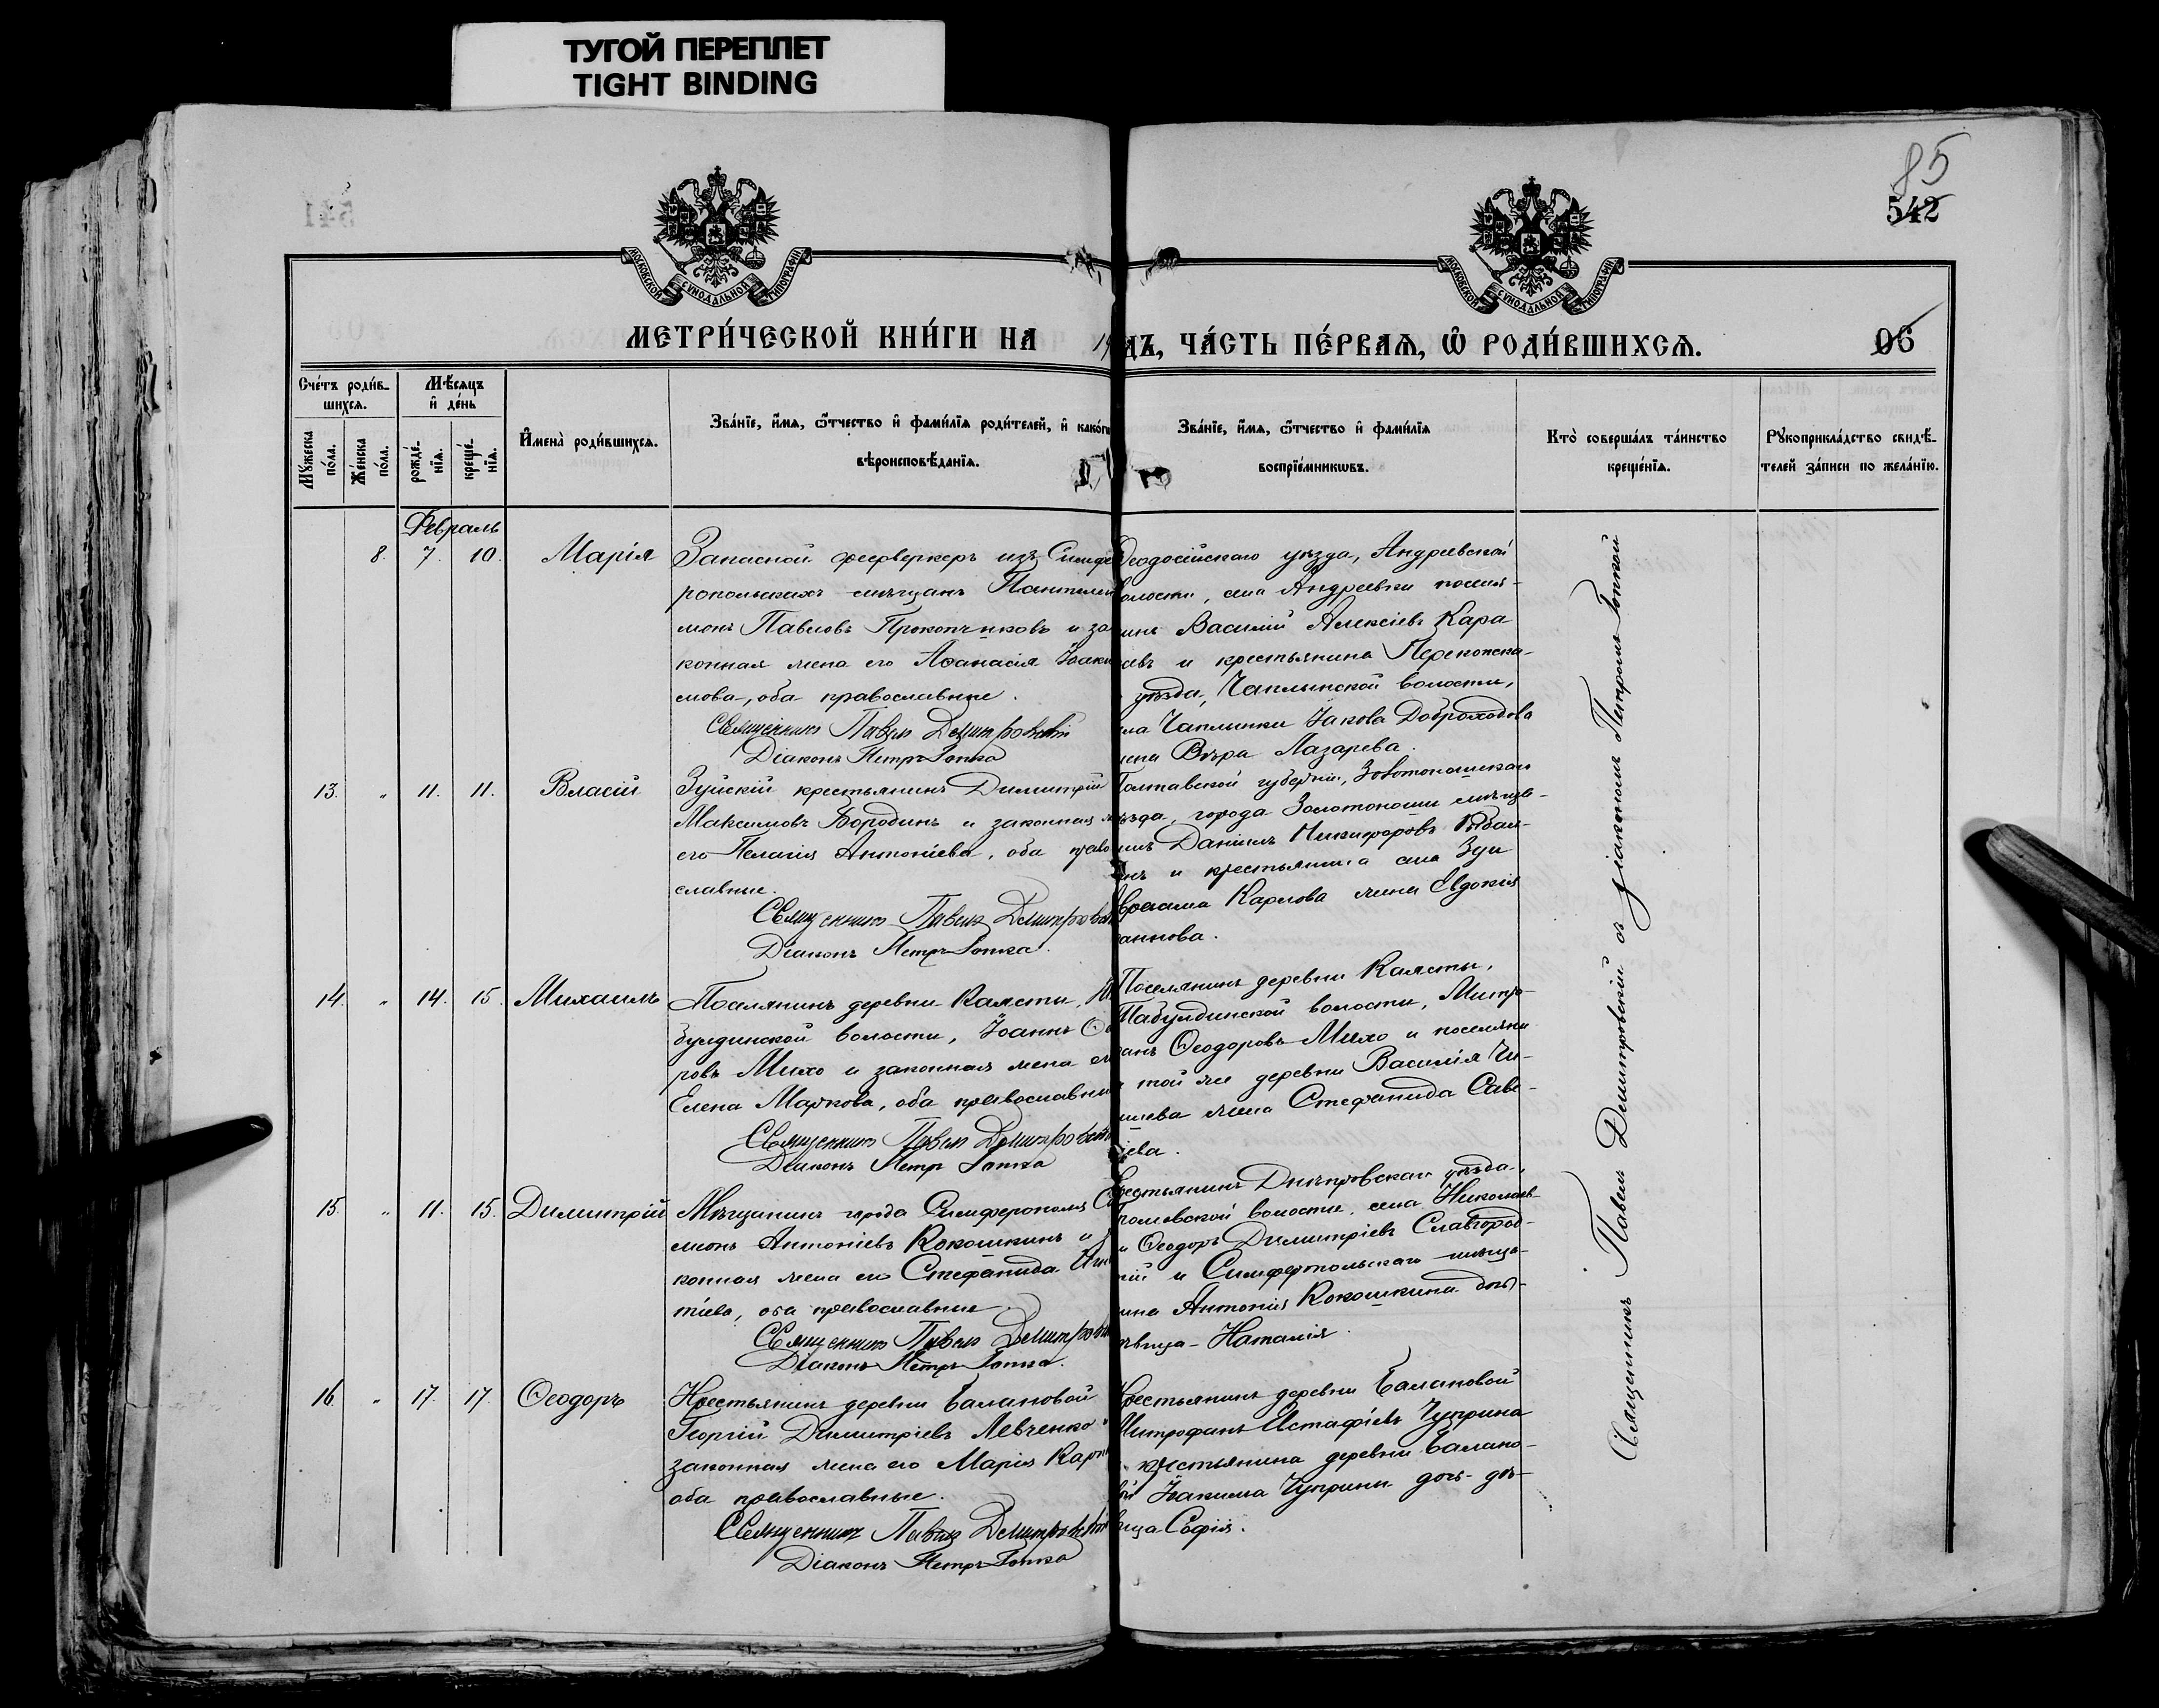 ТУГОЙ ПЕРЕПЛЕТ
TIGHT BINDING
85
542
541
МОСКОВСКОЙ СѴНОДАЛЬНОЙ ТИПОГРАФІИ
МОСКОВСКОЙ СѴНОДАЛЬНОЙ ТИПОГРАФІИ
МЕТРИ́ЧЕСКОЙ КНИ́ГИ НА 19
ДЪ, ЧА́СТЬ ПЕ́РВАѦ, Ѡ҆ РОДИ́ВШИХСѦ.
06
Сче́тъ роди́в-
шихсѧ.
Мѣ́сѧцъ
и҆ де́нь
Мꙋ́жеска
по́ла.
Же́нска
по́ла.
рожде́-
нїѧ.
креще́-
нїѧ.
И҆мена̀ роди́вшихсѧ.
Зва́нїе, и҆́мѧ, ѻ҆́тчество и҆ фами́лїѧ роди́телей, и҆ како́гѡ
вѣроисповѣ́данїѧ.
Зва́нїе, и҆́мѧ, ѻ҆́тчество и҆ фами́лїѧ
воспрїе́мникѡвъ.
Кто̀ соверша́лъ та́инство
креще́нїѧ.
Рꙋкоприкла́дство свидѣ́-
телей за́писи по жела́нїю.
Февраль
8. 7. 10. Марія
Запасной феерверкеръ изъ Симфе
ропольскихъ мѣщанъ Пантелей
монъ Павловъ Прокопчуковъ и за
конная жена его Аѳанасія Іоаки
мова, оба православные.
Священникъ Павелъ Демитровскій
Діаконъ Петръ Гопка
Ѳеодосійскаго уѣзда, Андреевской
олости, села Андреевки посел-
инъ Василій Алексіевъ Кара
евъ и крестьянина Перекопска-
уѣзда, Чаплинской волости,
ла Чаплинки Іакова Доброходова
ена Вѣра Лазарева.
13. " 11. 11. Власій
Зуйскій крестьянинъ Димитрій
Максимовъ Бородинъ и законная ж
его Пелагія Антоніева, оба право
славные.
Священникъ Павелъ Демитровскій
Діаконъ Петръ Гопка.
Полтавской губерніи, Золотоношскаго
ѣзда, города Золотоноши мѣща-
инъ Даніилъ Никифоровъ Рыбал-
нъ и крестьянина села Зуи
Карлова жена Евдокія
аннова.
14. " 14. 15. Михаилъ
Поселянинъ деревни Калсты, Т
булдинской волости, Іоаннъ Ѳе
ровъ Михо и законная жена е
Елена Маркова, оба православные
Священникъ Павелъ Демитровскі
Діаконъ Петръ Гопка
Поселянинъ деревни Калсты,
Табулдинской волости, Митро-
анъ Ѳеодоровъ Михо и поселяни
той же деревни Василія Чи-
ева жена Стефанида Саве-
іева.
15. " 11. 15. Димитрій
Мѣщанинъ города Симферополя С
меонъ Антоніевъ Кокошкинъ и з
конная жена его Стефанида Игн
тіева, оба православные
Священникъ Павелъ Демитров
Діаконъ Петръ Гопка.
рестьянинъ Днѣпровскаго уѣзда,
волости, села Николаев-
и Ѳеодоръ Димитріевъ Славгород-
кій и Симферопольскаго мѣща-
ина Антонія Кокошкина дочь-
ѣвица - Наталія.
16. " 17. 17. Ѳеодоръ
Крестьянинъ деревни Балановой
Георгій Димитріевъ Левченко и
законная жена его Марія Карп
оба православные.
Священникъ Павелъ Демитровскій
Діаконъ Петръ Гопка
Крестьянинъ деревни Балановой
Митрофанъ Астафіевъ Чуприна
крестьянина деревни Балано-
ой Іоакима Чуприны дочь- дѣ-
вица Софія.
Священникъ Павелъ Демитровскій съ діакономъ Петромъ Гопкой